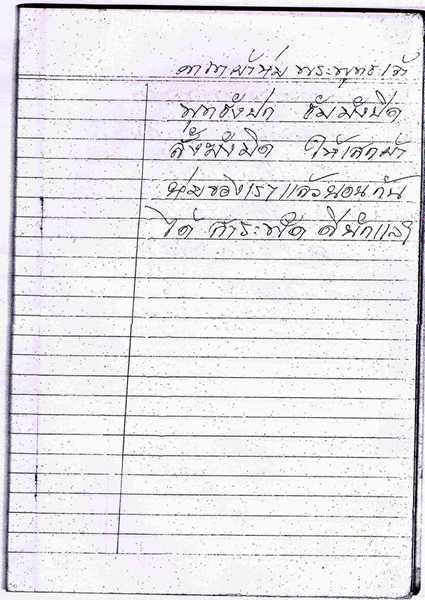 คาถาผ้าห่ม พระพุทธเจ้า
พุทธังปก ธัมมังปิด
สังฆังมิด ให้เสกผ้า
ห่มของเราแล้วนอนกัน
ได้ สาระพัด ดีนักแล